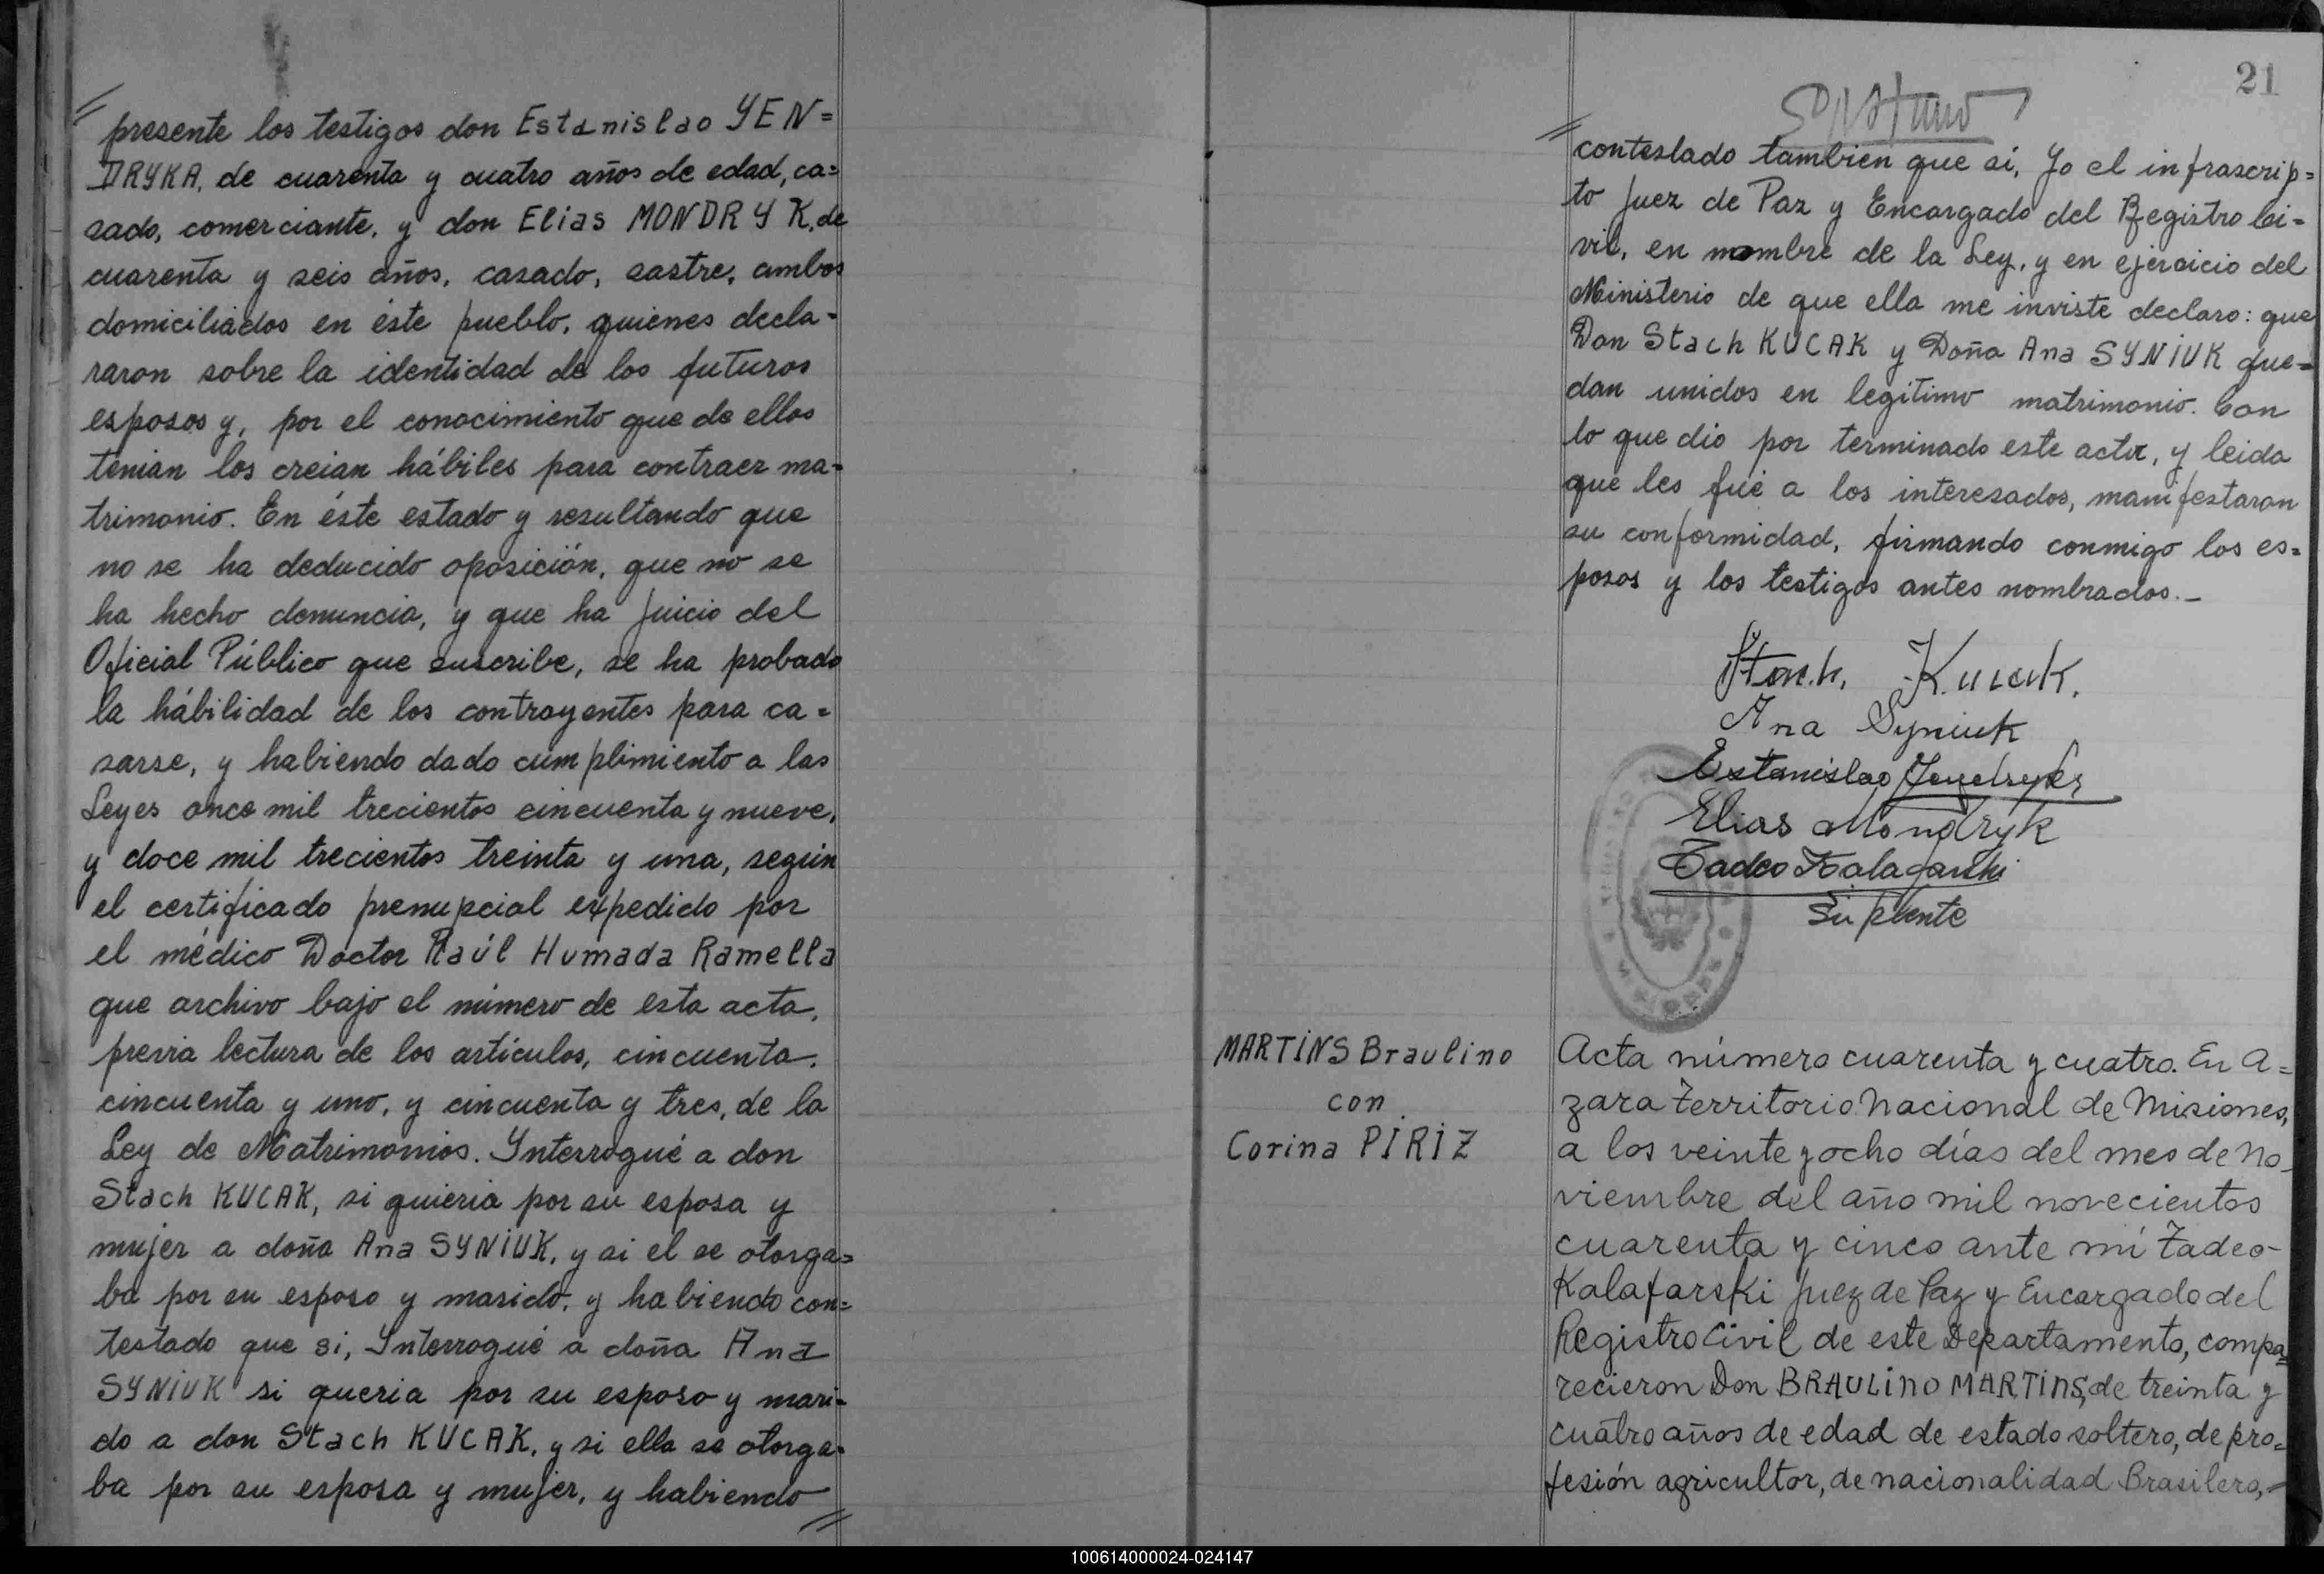 presente los testigos don Estanislao YEN=
DRYKA, de cuarenta y cuatro años de edad, ca=
sado, comerciante, y don Elias MONDRYK, de
cuarenta y seis años, casado, sastre, ambos
domiciliados en éste pueblo, quienes decla-
raron sobre la identidad de los futuros
esposos y, por el conocimiento que de ellos
tenian los creian hábiles para contraer ma-
trimonio. En éste estado y resultando que
no se ha deducido oposición, que no se
ha hecho denuncia, y que ha juicio del
Oficial Público que suscribe, se ha probado
la hábilidad de los contrayentes para ca=
sarse, y habiendo dado cumplimiento a las
Leyes once mil trecientos cincuenta y nueve,
y doce mil trecientos treinta y una, según
el certificado prenupcial expedido por
el médico Doctor Raúl Humada Ramella
que archivo bajo el número de esta acta,
previa lectura de los artículos, cincuenta,
cincuenta y uno, y cincuenta y tres, de la
Ley de Matrimonios. Interrogué a don
Stach KUCAK, si quieria por su esposa y
mujer a doña Ana SYNIUK, y si el se otorga=
ba por su esposo y marido, y habiendo con=
testado que si, Interrogué a doña Ana
SYNIUK si queria por su esposo y mari-
do a don Stach KUCAK, y si ella se otorga-
ba por su esposa y mujer, y habiendo
21
contestado tambien que sí, Yo el infrascrip=
to Juez de Paz y Encargado del Registro Ci=
vil, en nombre de la Ley, y en ejercicio del
Ministerio de que ella me inviste declaro: que
Don Stach KUCAK y Doña Ana SYNIUK que=
dan unidos en legitimo matrimonio. Con
lo que dio por terminado este acto, y leida
que les fué a los interesados, manifestaron
su conformidad, firmando conmigo los es=
posos y los testigos antes nombrados.-
Stach Kucak.
Ana Syniuk
Estanislao Jendryka
Elias Mondryk
Tadeo Kalafarski
Suplente
MARTINS Braulino
con
Corina PIRIZ
Acta número cuarenta y cuatro. En A=
zara Territorio Nacional de Misiones,
a los veinte y ocho días del mes de no-
viembre del año mil novecientos
cuarenta y cinco ante mí Tadeo
Kalafarski Juez de Paz y Encargado del
Registro Civil de este Departamento, compa=
recieron Don BRAULINO MARTINS, de treinta y
cuatro años de edad de estado soltero, de pro=
fesión agricultor, de nacionalidad Brasilera,
100614000024-024147